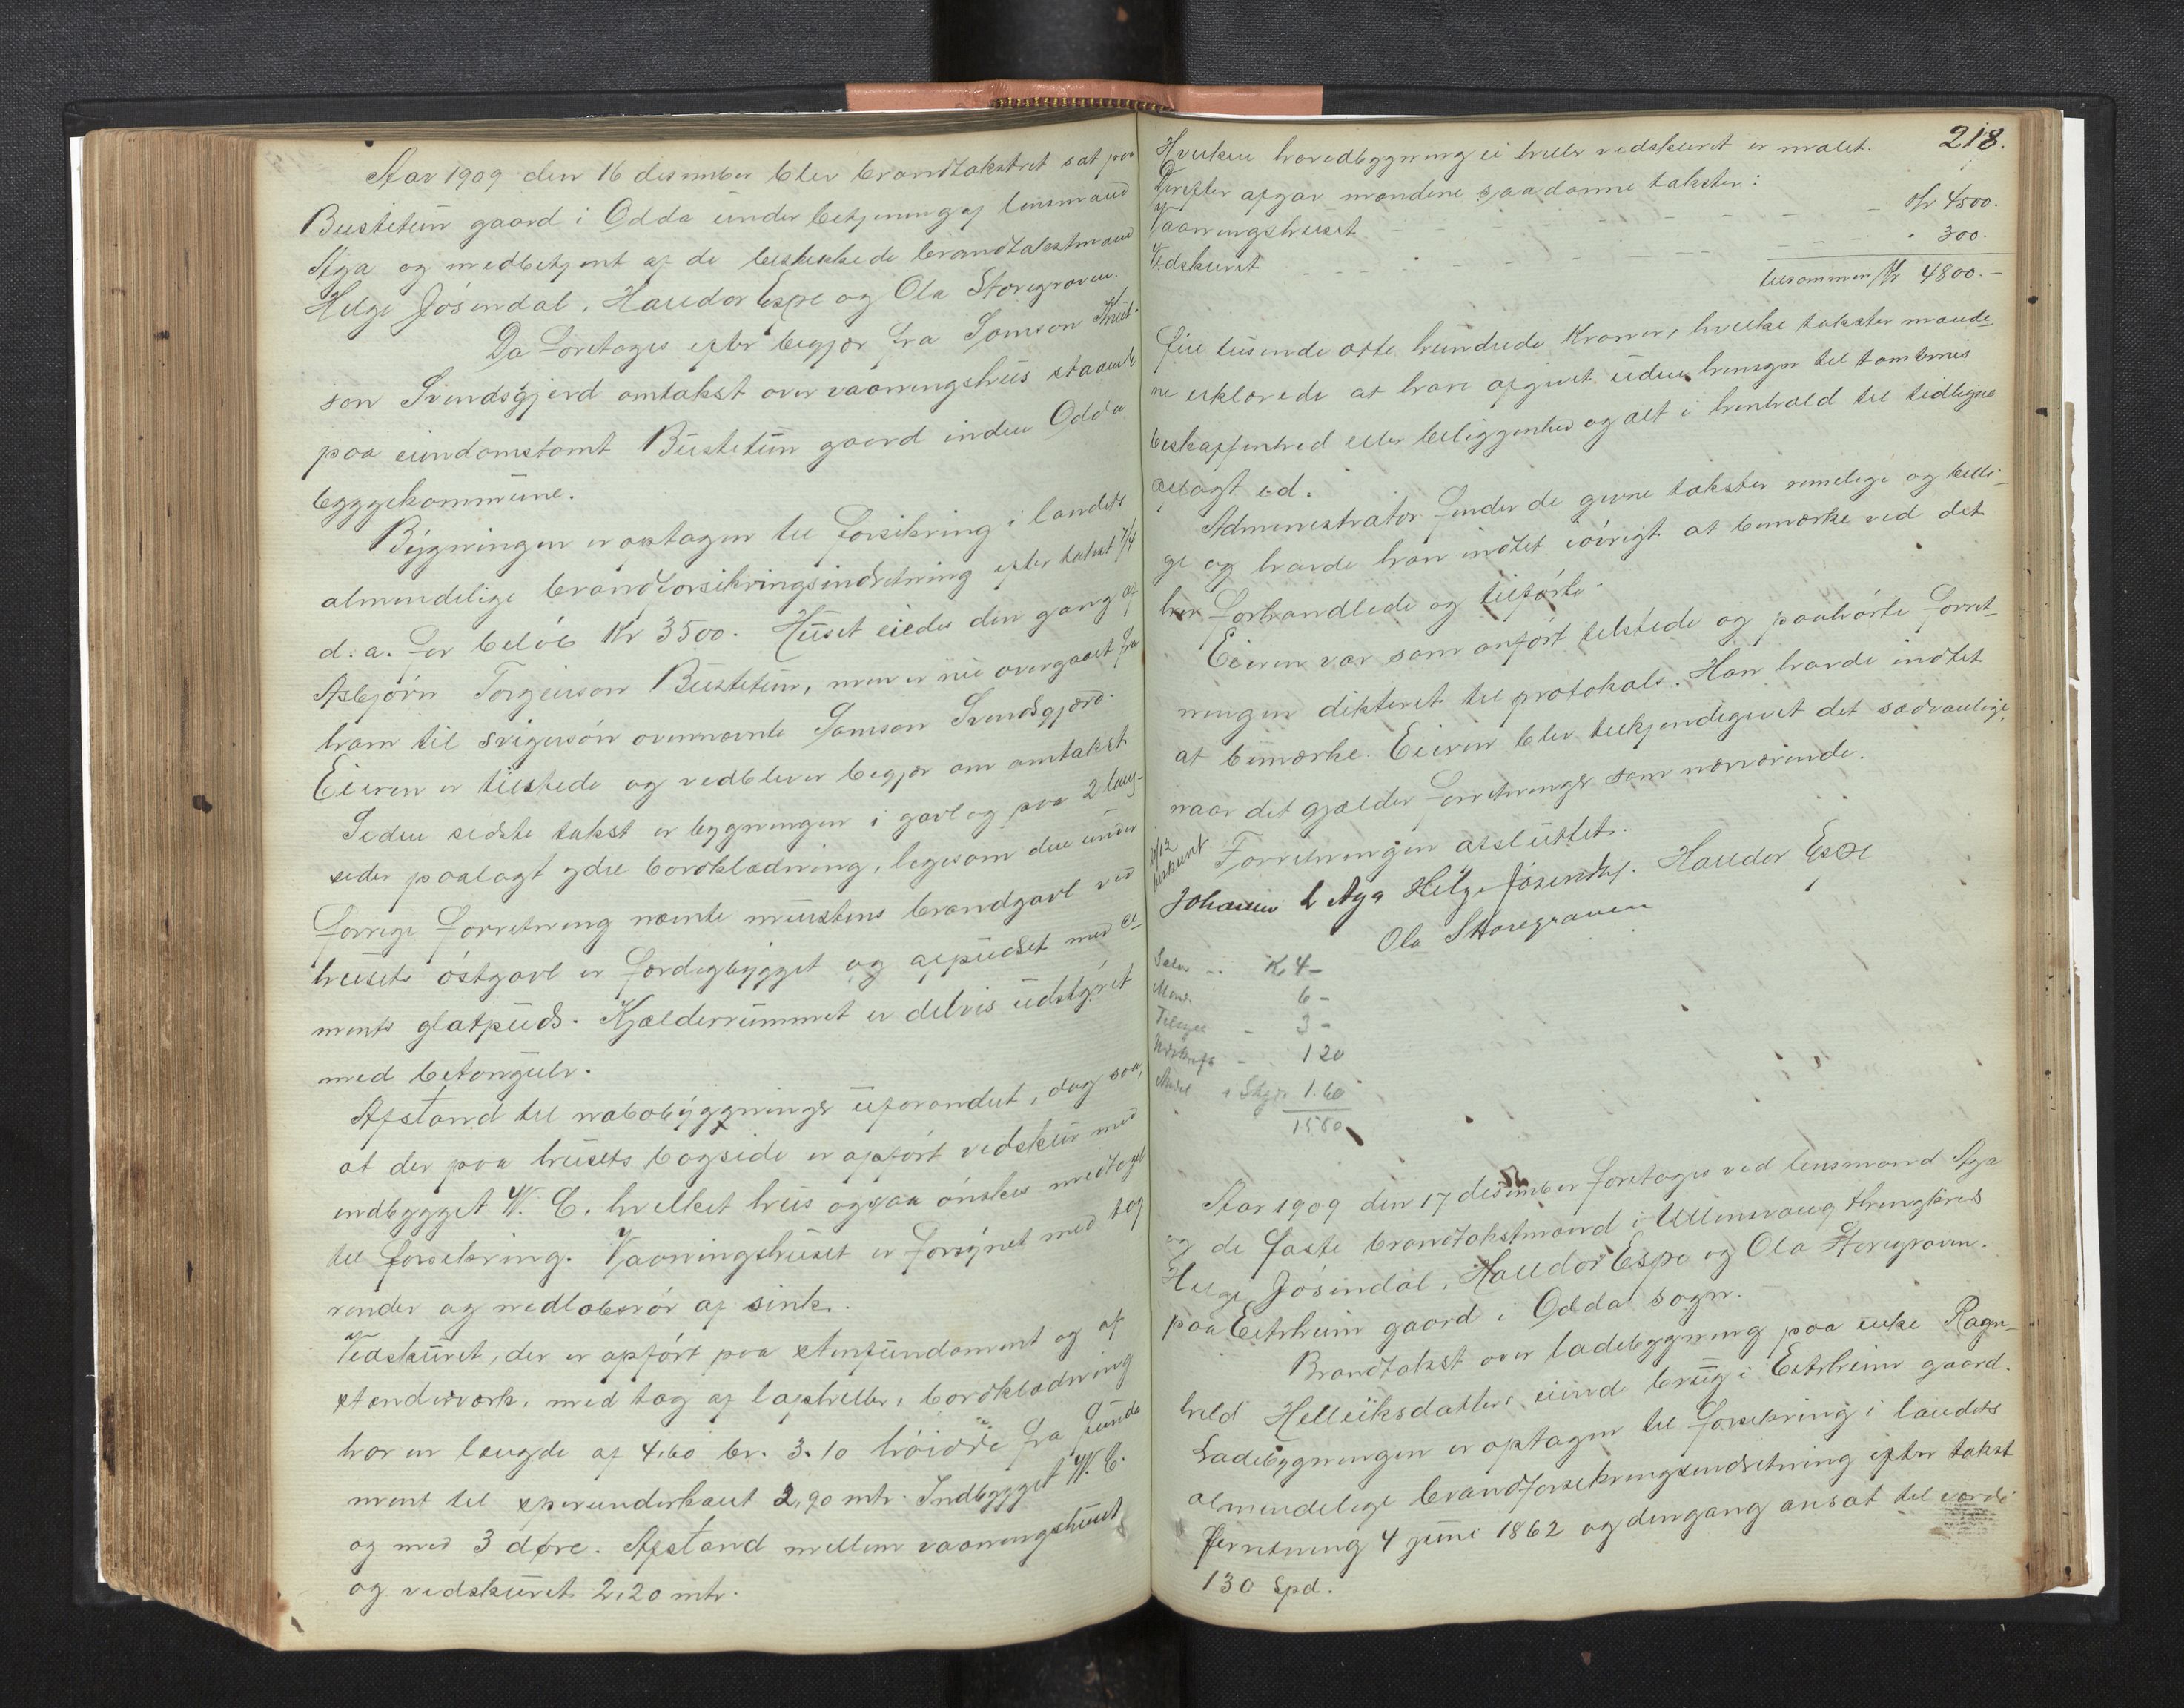 Aar 1909 den 16 desember blev brandtakstret sat paa
Bustetun gaard i Odda under betjening af lensmand
Aga og medbetjent af de beskikkede brandtakstmænd
Helge Jösendal, Haldor Espe og Ola Storegraven.
Da foretoges efter begjær fra Samson Knut-
son Svendsgjerd omtakst over vaaningshus staaende
paa eiendomstomt Bustetun gaard inden Odda
byggekommune.
Bygningen er optagen til forsikring i landets
almindelige brandforsikringsindretning efter takst 7/4
d. a. for beløb Kr 3500. Huset eiedes den gang af
Asbjörn Torgeirson Bustetun, men er nu overgaaet fra
ham til svigersön ovennævnte Samson Svendsgjærd.
Eieren er tilstede og vedbliver begjær om omtakst
Siden sidste takst er bygningen i gavl og paa 2 lang-
sider paalagt ydre bordklædning, ligesom den under
forrige forretning nævnte murstens brandgavl ved
husets östgavl er færdigbygget og afpudset med ce-
ments glatpuds. Kjælderrummet er delvis udstyret
med betongulv.
Afstand til nabobygninger uforandret, dog saa,
at der paa husets bagside er opfört vedskur med
indbygget W. C. hvilket hus ogsaa önskes medtaget
til forsikring. Vaaningshuset er forsynet med tag
render og nedlöbsrör af sink.
Vedskuret, der er opfört paa stenfundament og af
stenderværk, med tag af lapheller, bordklædning
har en længde af 4,60 br. 3.10 höide fra funda
ment til sperunderkant 2,90 mtr. Indbygget W. C.
og med 3 døre. Afstand mellem vaaningshuset
og vedskuret 2,20 mtr.
218.
Hverken hovedbygning ei heller vedskuret er malet.
Derefter afgav mændene saadanne takster:
Vaaningshuset - - - - - - - Kr 4500.
Vedskuret - - - - - - - " 300.
tilsammen Kr 4800.-
fire tusende otte hundrede Kroner, hvilke takster mænde-
ne erklærede at have afgivet uden hensyn til tomternes
beskaffenhed eller beliggenhed og alt i henhold til tidligere
aflagt ed.
Administrator finder de givne takster rimelige og billi-
ge og havde han indtet iövrigt at bemærke ved det
her forhandlede og tilförte.
Eieren var som anfört tilstede og paahörte forret-
ningen dikteret til protokols. Han havde indtet
at bemærke. Eieren blev tilkjendegivet det sædvanlige,
naar det gjælder forretninger som nærværende.
Forretningen afsluttet.
21/12
beskrevet
Johannes L Aga Helge Jösendal. Haldor Espe
Ola Storegraven
K 4-
Mænd. 6-
3-
Udskrift - 120
i Skyds 1.60
1580
Aar 1909 den 17 desember foretoges ved lensmand Aga
og de faste brandtakstmænd i Ullensvang thinglred
Helge Jösendal, Haldor Espe og Ola Storegraven.
paa Eitrheim gaard i Odda sogn.
Brandtakst over ladebygning paa enke Ragn-
hild Helleiksdatters eiende brug i Eitrheim gaard.
Ladebygningen er optagen til forsikring i landets
almindelige brandforsikringsindretning efter takst
forretning 4 juni 1862 og dengang ansat til værdi
130 Spd.